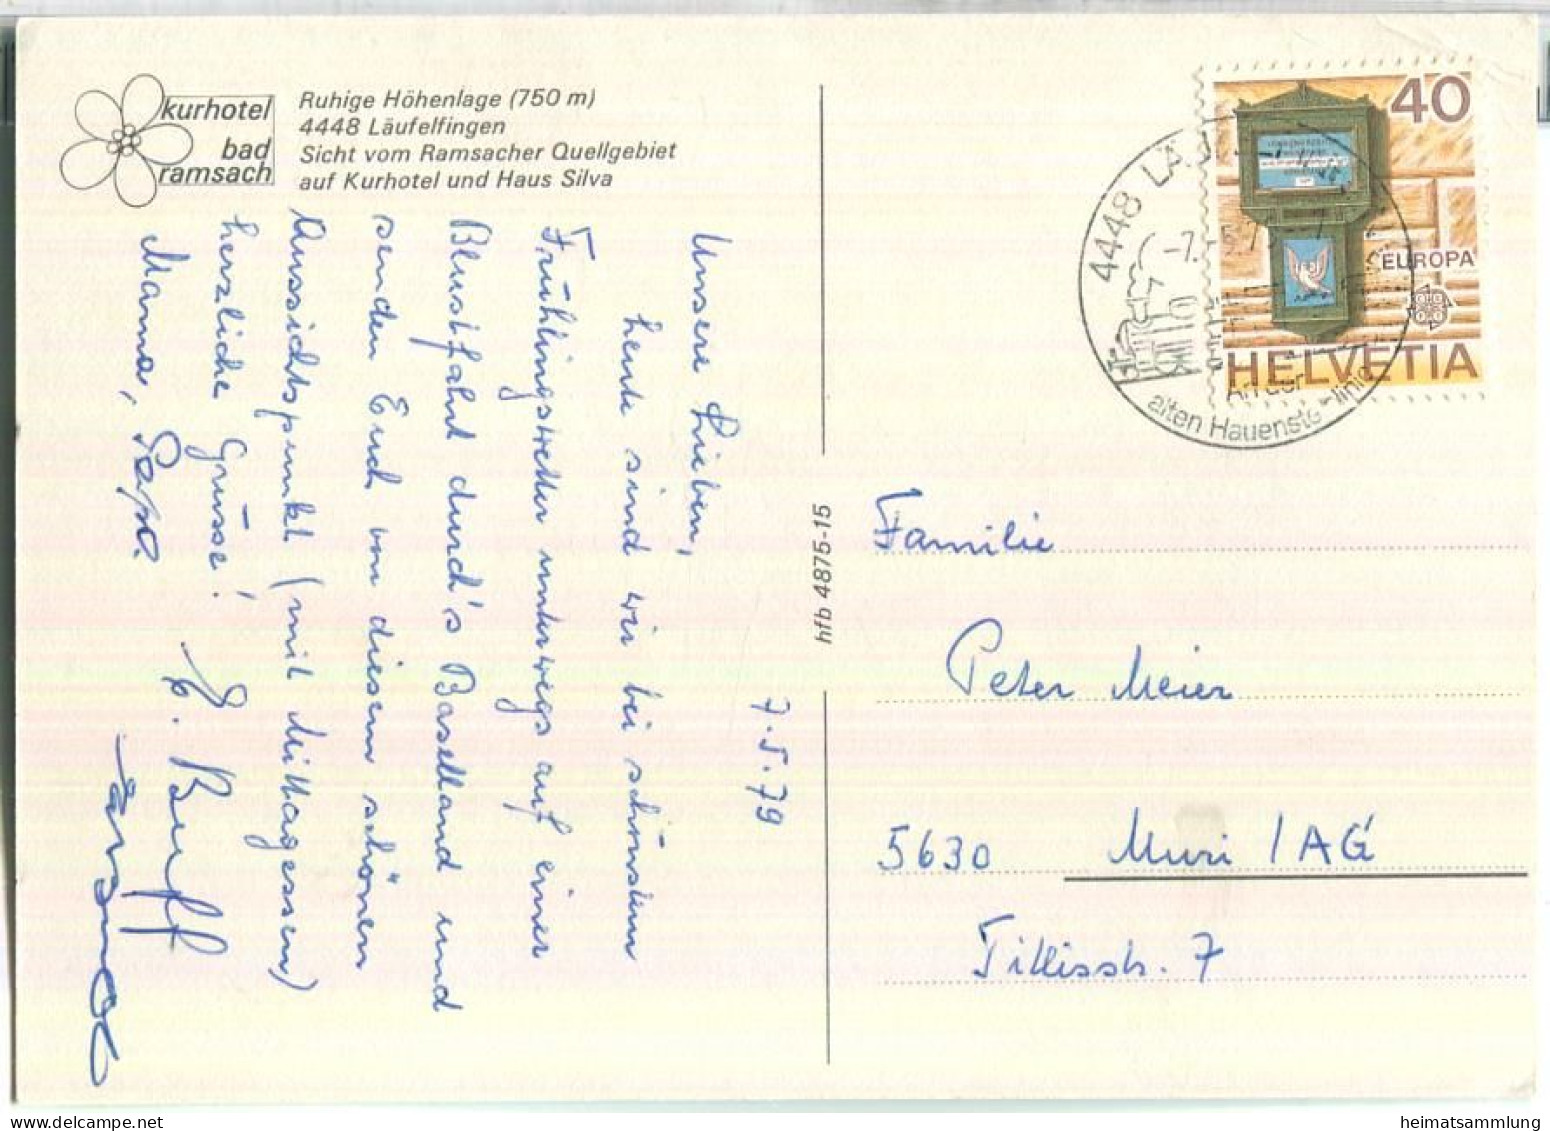 kurhotel
bad
ramsach
Ruhige Höhenlage (750 m)
4448 Läufelfingen
Sicht vom Ramsacher Quellgebiet
auf Kurhotel und Haus Silva
7.5.79
Unsere Lieben,
heute sind wir bei schönstem
Frühlingswetter unterwegs auf einer
Blustfahrt durch's Baselland und
senden Euch von diesem schönen
Aussichtspunkt (mit Mittagessen)
herzliche Grüsse!
Mamma, Papa
hfb 4875-15
40
EUROPA
HELVETIA
4448 LÄU
-7.
An der
alten Hauenstein-linie
Familie
Peter Meier
5630 Muri / AG
Tillisstr. 7
heimatsammlung
delcampe.net